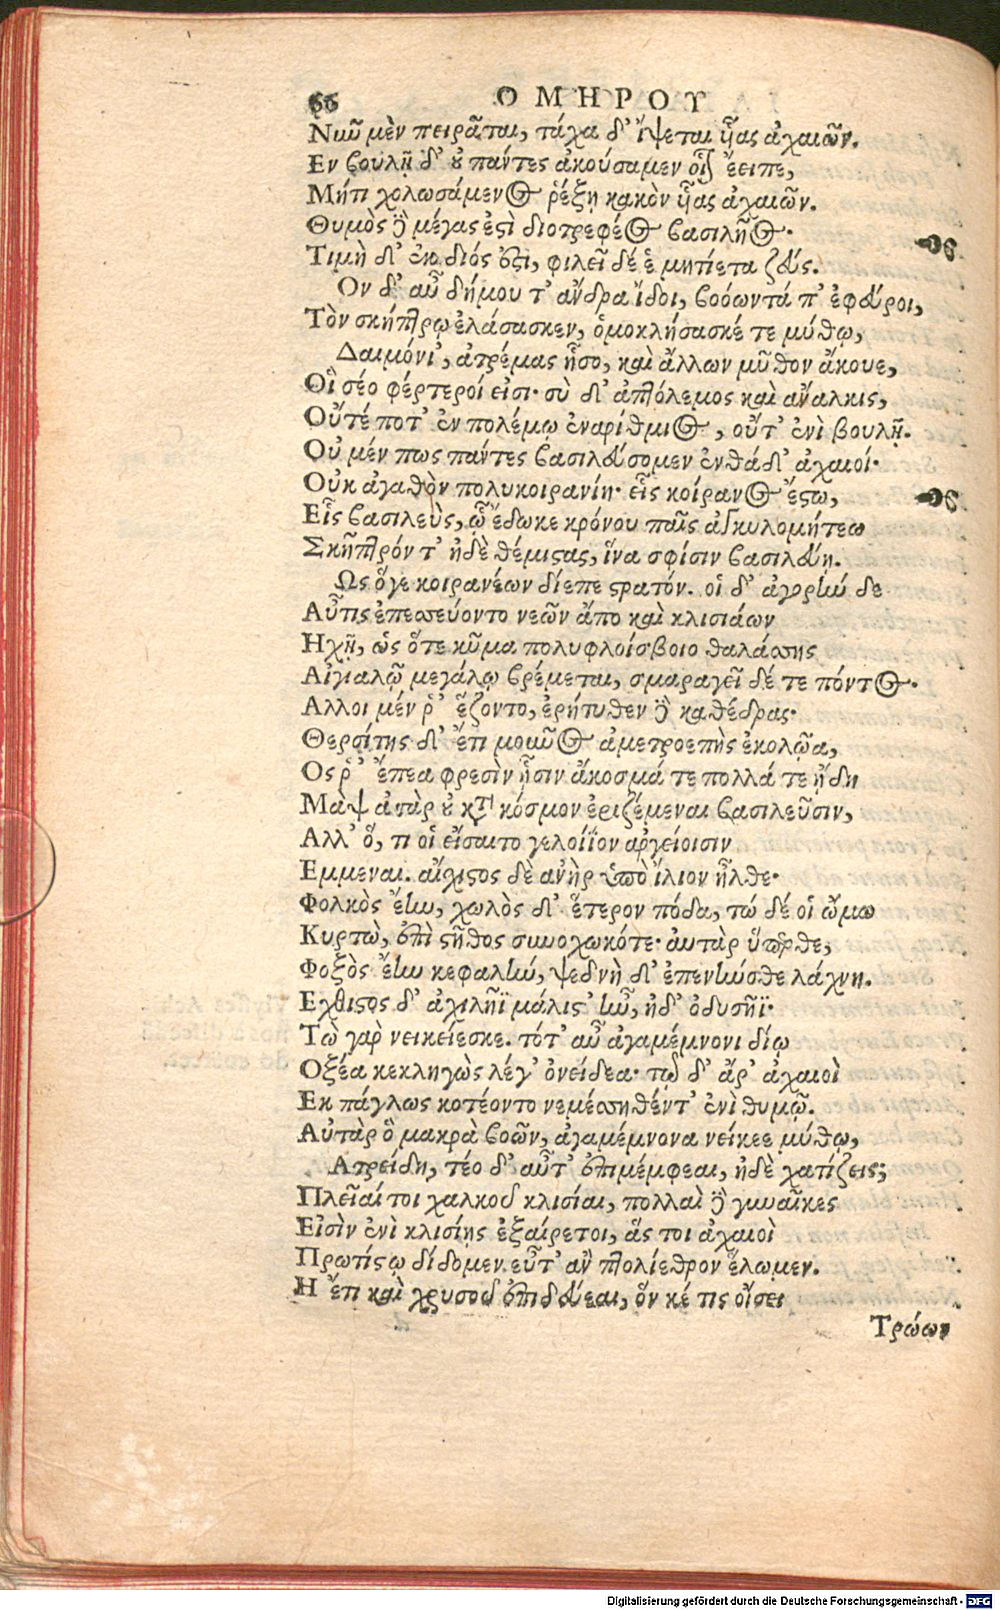 66 ΟΜΗΡΟΥ
Νῦν μὲν πειρᾶται, τάχα δ' ἴψεται ἧας ἀχαιῶν.
Εν βουλῇ δ' οὐ πάντες ἀκούσαμεν οἷον ἔειπε,
Μήτι χολωσάμενος ῥέξῃ κακὸν ἧας ἀχαιῶν.
Θυμὸς δὲ μέγας ἐστὶ διοτρεφέος βασιλῆος.
Τιμὴ δ' ἐκ διός ἐστι, φιλεῖ δέ ἑ μητίετα ζεύς.
Ον δ' αὖ δήμου τ' ἄνδρα ἴδοι, βοόωντά τ' ἐφεύροι,
Τὸν σκήπτρῳ ἐλάσασκεν, ὁμοκλήσασκέ τε μύθῳ,
Δαιμόνι', ἀτρέμας ἧσο, καὶ ἄλλων μῦθον ἄκουε,
Οἳ σέο φέρτεροί εἰσι· σὺ δ' ἀπτόλεμος καὶ ἄναλκις,
Οὔτέ ποτ' ἐν πολέμῳ ἐναρίθμιος, οὔτ' ἐνὶ βουλῇ.
Οὐ μέν πως πάντες βασιλεύσομεν ἐνθάδ' ἀχαιοί·
Οὐκ ἀγαθὸν πολυκοιρανίη· εἷς κοίρανος ἔστω,
Εἷς βασιλεὺς, ᾧ ἔδωκε κρόνου παῖς ἀγκυλομήτεω
Σκῆπτρόν τ' ἠδὲ θέμιστας, ἵνα σφίσιν βασιλεύῃ.
Ως ὅγε κοιρανέων δίεπε στρατόν. οἱ δ' ἀγορὴν δε
Αὖτις ἐπεσσεύοντο νεῶν ἄπο καὶ κλισιάων
Ηχῇ, ὡς ὅτε κῦμα πολυφλοίσβοιο θαλάσσης
Αἰγιαλῷ μεγάλῳ βρέμεται, σμαραγεῖ δέ τε πόντος.
Αλλοι μέν ῥ' ἕζοντο, ἐρήτυθεν δὲ καθέδρας·
Θερσίτης δ' ἔτι μοῦνος ἀμετροεπὴς ἐκολῴα,
Ος ῥ' ἔπεα φρεσὶν ᾗσιν ἄκοσμά τε πολλά τε ᾔδη
Μὰψ ἀτὰρ οὐ κατὰ κόσμον ἐριζέμεναι βασιλεῦσιν,
Αλλ' ὅ, τι οἱ εἴσαιτο γελοίϊον ἀργείοισιν
Εμμεναι. αἴχιστος δὲ ἀνὴρ ὑπὸ ἴλιον ἦλθε·
Φολκὸς ἔην, χωλὸς δ' ἕτερον πόδα, τώ δέ οἱ ὤμω
Κυρτὼ, ἐπὶ στῆθος συνοχωκότε· αὐτὰρ ὕπερθε,
Φοξὸς ἔην κεφαλὴν, ψεδνὴ δ' ἐπενήνοθε λάχνη.
Εχθιστος δ' ἀχιλῆϊ μάλιστ' ἦν, ἠδ' ὀδυσῆϊ·
Τὼ γὰρ νεικείεσκε. τότ' αὖ ἀγαμέμνονι δίῳ
Οξέα κεκληγὼς λέγ' ὀνείδεα· τῷ δ' ἄρ' ἀχαιοὶ
Εκ πάγλως κοτέοντο νεμέσσηθέντ' ἐνὶ θυμῷ.
Αὐτὰρ ὃ μακρὰ βοῶν, ἀγαμέμνονα νείκεε μύθῳ,
Ατρείδη, τέο δ' αὖτ' ἐπιμέμφεαι, ἠδὲ χατίζεις;
Πλεῖαί τοι χαλκοῦ κλισίαι, πολλαὶ δὲ γυναῖκες
Εἰσὶν ἐνὶ κλισίῃς ἐξαίρετοι, ἅς τοι ἀχαιοὶ
Πρωτίστῳ δίδομεν. εὖτ' ἂν πτολίεθρον ἕλωμεν.
Η ἔτι καὶ χρυσοῦ ἐπιδεύεαι, ὅν κέ τις οἴσει
Τρώων
Digitalisierung gefördert durch die Deutsche Forschungsgemeinschaft - DFG